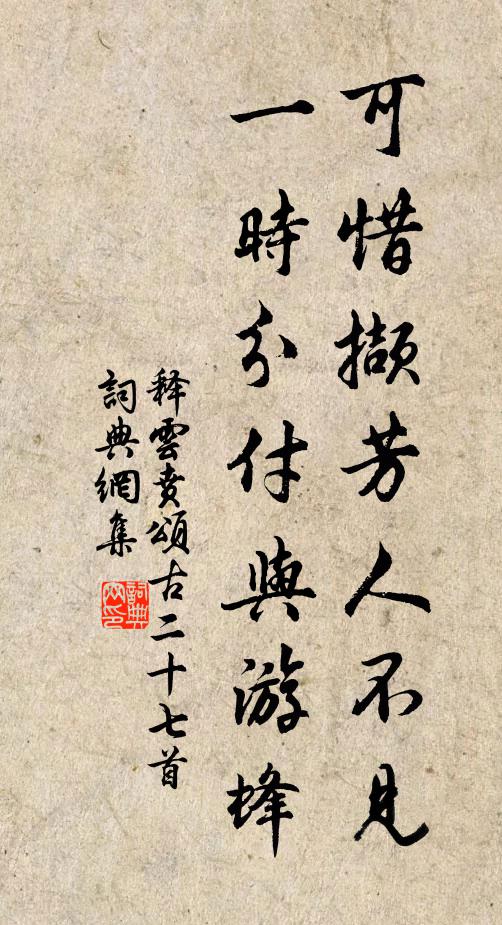 可惜擷芳人不見
一時分付與游蜂
释雲賁頌古二十七首
詞典網集
詞典
网印